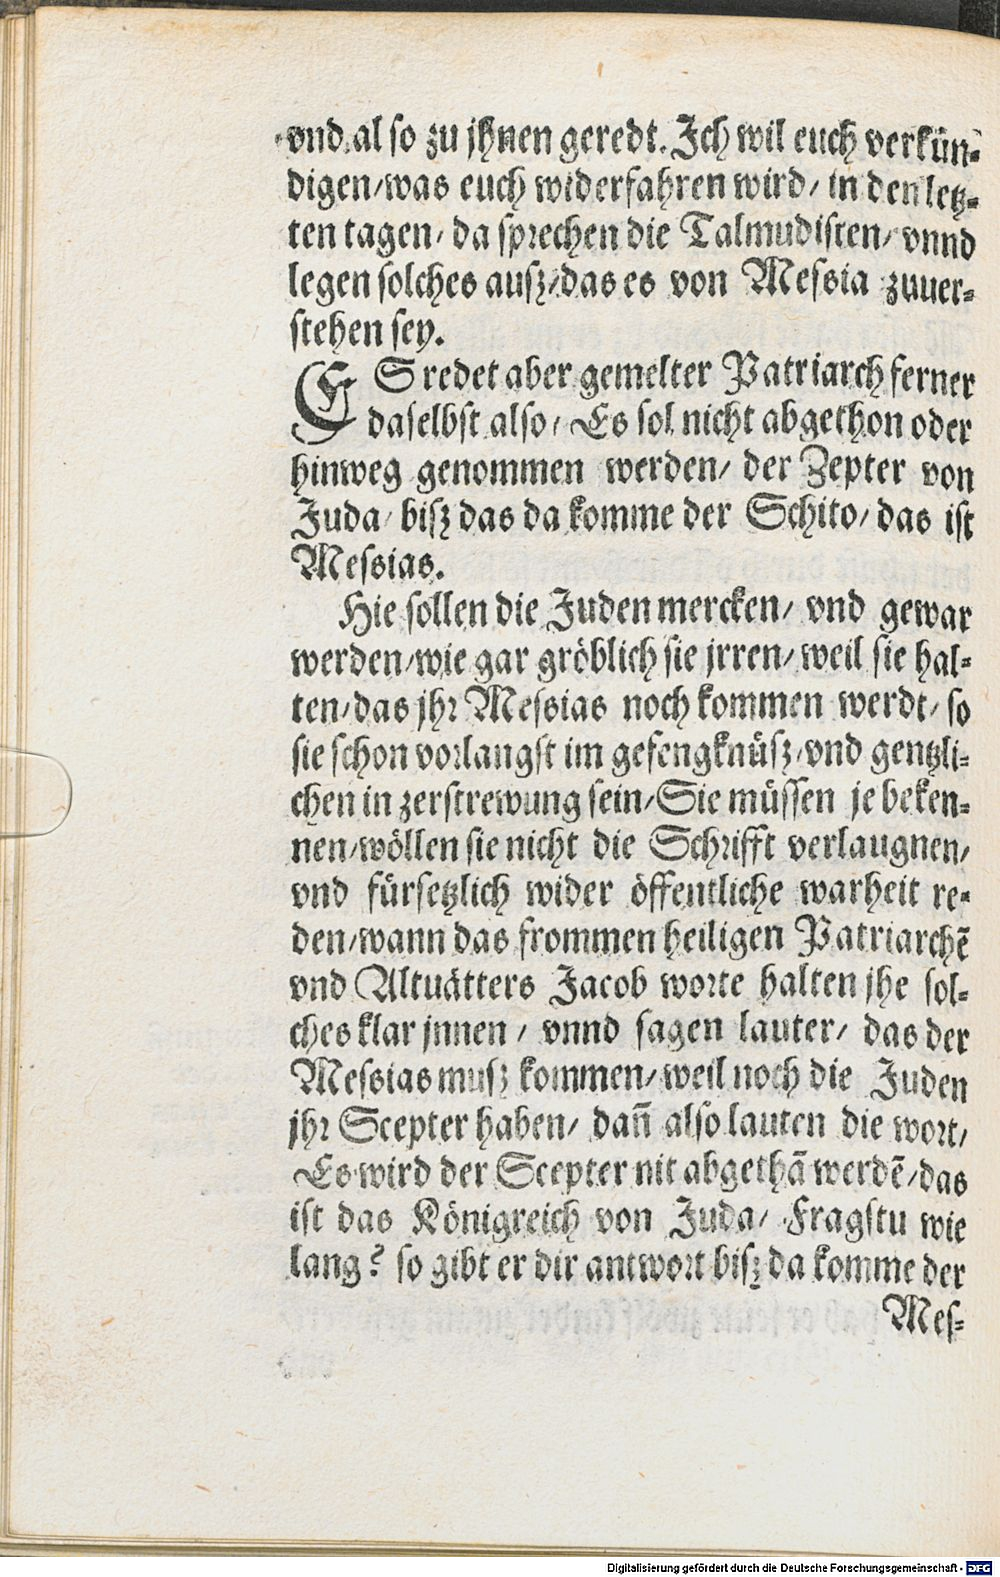 vnd also zu jhnen geredt. Ich wil euch verkün-
digen/was euch widerfahren wird/ in den letz-
ten tagen/ da sprechen die Talmudisten/ vnnd
legen solches ausz/das es von Messia zuuer-
stehen sey.
ES redet aber gemelter Patriarch ferner
daselbst also/ Es sol nicht abgethon oder
hinweg genommen werden/ der Zepter von
Juda/ bisz das da komme der Schito/ das ist
Messias.
Hie sollen die Juden mercken/ vnd gewar
werden/wie gar gröblich sie jrren/ weil sie hal-
ten/das jhr Messias noch kommen werdt/ so
sie schon vorlangst im gefengknüsz/vnd gentzli-
chen in zerstrewung sein/Sie müssen je beken-
nen/wöllen sie nicht die Schrifft verlaugnen/
vnd fürsetzlich wider öffentliche warheit re-
den/wann das frommen heiligen Patriarchē
vnd Altuätters Jacob worte halten jhe sol-
ches klar jnnen/ vnnd sagen lauter/ das der
Messias musz kommen/weil noch die Juden
jhr Scepter haben/ dañ also lauten die wort/
Es wird der Scepter nit abgethā werdē/das
ist das Königreich von Juda/ Fragstu wie
lang? so gibt er dir antwort bisz da komme der
Mes-
Digitalisierung gefördert durch die Deutsche Forschungsgemeinschaft - DFG